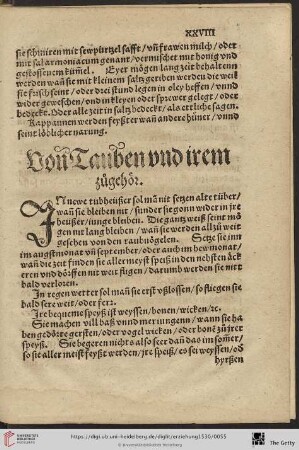 XXVIII
sie schmiren mit sewpürtzel safft / vñ frawen milch / oder
mit sal armoniacum genant / vermischet mit honig vnd
gestossenem kümel. Eyer mögen lang zeit behalten
werden wañ sie mit kleinem saltz geriben werden die weil
sie frisch seint / oder drei stund legen in oley heffen / vnnd
wider geweschen / vnd in kleyen oder sprewer gelegt / oder
bedeckt. Oder alle zeit in saltz bedeckt / als etzliche sagen.
Kappaunen werden feyßter wañ andere hüner / vnnd
seint löblicher narung.
Von Tauben vnd irem
zůgehör.
IN newe tubheüßer sol mã nit setzen alte tüber /
wañ sie bleiben nit / sunder sie gonn wider in jre
heüßer / iunge bleiben. Die gantz weiß seint mö
gen nit lang bleiben / wañ sie werden all zů weit
gesehen von den raubuögelen. Setze sie inn
im augstmonat vñ september / oder auch im hewmonat /
wañ die zeit finden sie aller meyst speiß in den nehsten äck
eren vnd dörffen nit weit fligen / darumb werden sie nit
bald verloren.
In regen wetter sol man sie erst vßlossen / so fliegen sie
bald sere weit / oder ferr.
Ire bequeme speyß ist weyssen / bonen / wicken / ꝛc.
Sie machen will baß vnnd mer iungenn / wann sie
haben gedörre gersten / oder vogel wicken / oder bonẽ zů jrer
speyß. Sie begeren nit also seer dañ das im som̃er /
so sie aller meist feyßt werden / jre speiß / es sei weyssen / od̕
hyrßen
https://digi.ub.uni-heidelberg.de/diglit/erziehung1530/0055
© Universitätsbibliothek Heidelberg
UNIVERSITÄTS-
BIBLIOTHEK
HEIDELBERG
The Getty